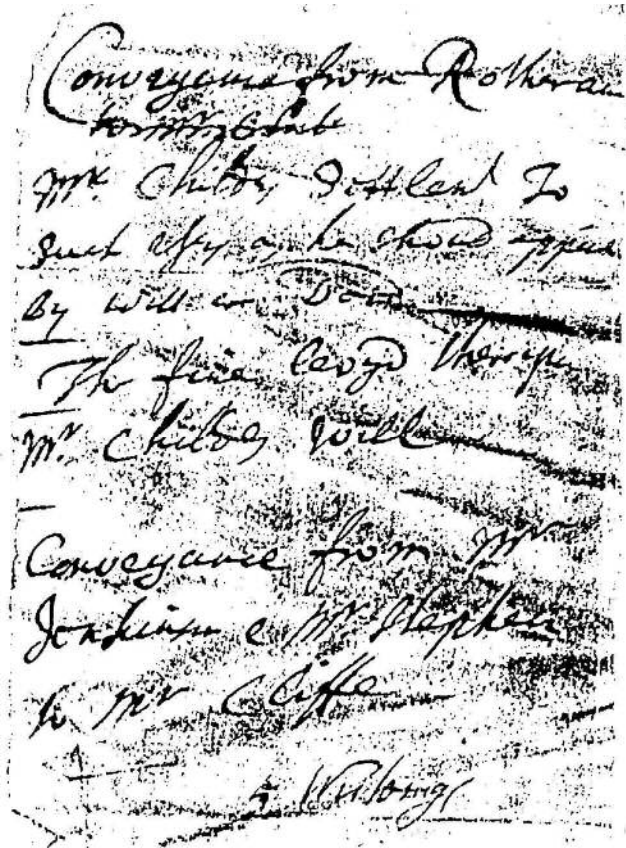 Conveyance from Rotheram
to Mr Childe
Mr. Childes Settlemt To
such uses as he should appoint
By will or Deed
The fine levyd thereupon
Mr Childes Will
Conveyance from Mr
Jenkinson & Mr Stephen
to Mr Cliffe
5 Writeings